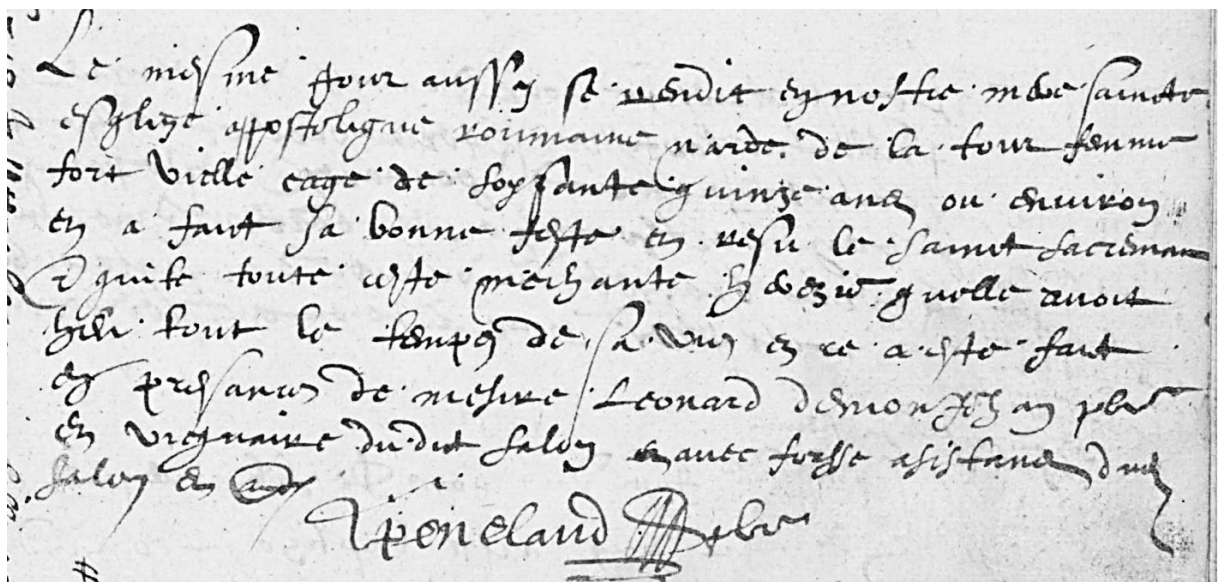 Le mesme jour aussy se rendit en nostre mere saincte
esglize appostolique roumaine narde de la tour femme
fort vielle eage de soyssante quinze ans ou environ
et a fait sa bonne feste et resu le saint sacreman
& quite toute ceste mechante herezie quelle avoit
tout le temps de sa vie et ce a este fait
en presance de mesire Leonard demontjehan pbre
et vicquaire dudit salon et avec forsse asistance du
salon et
peneland pbre